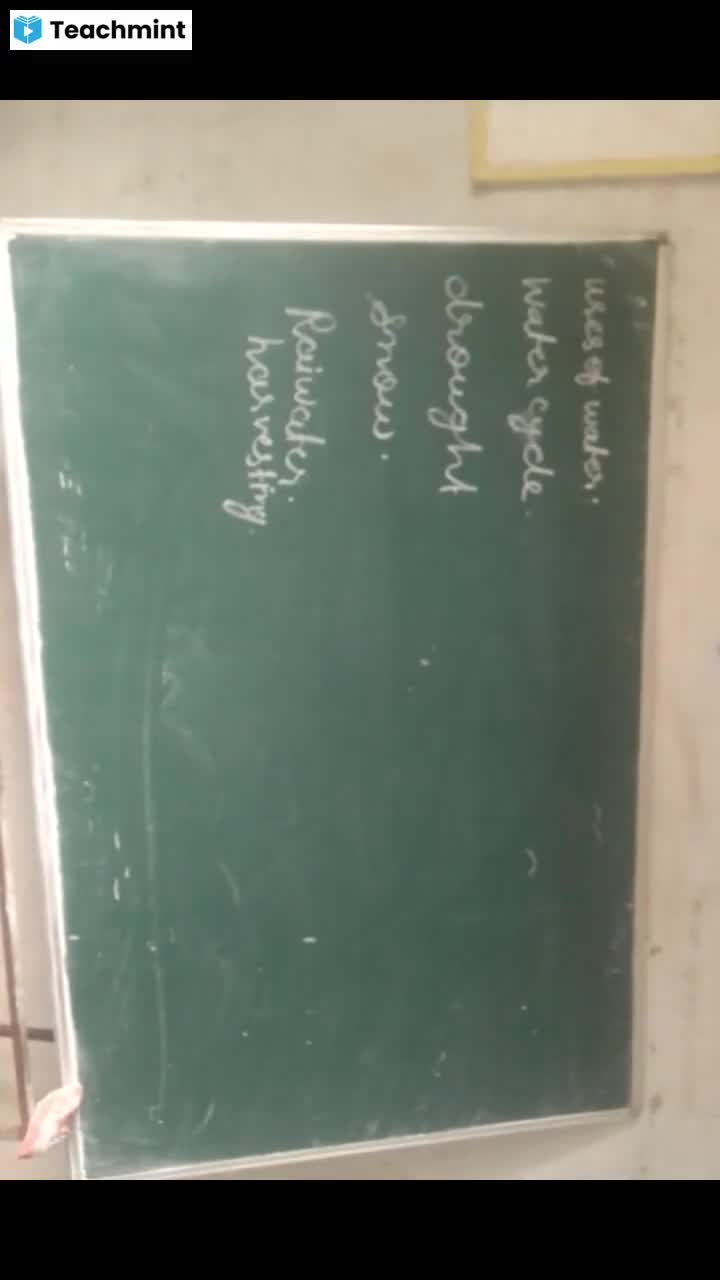 Teachmint
uses of water.
water cycle.
drought
snow.
Raiwater.
harvesting.